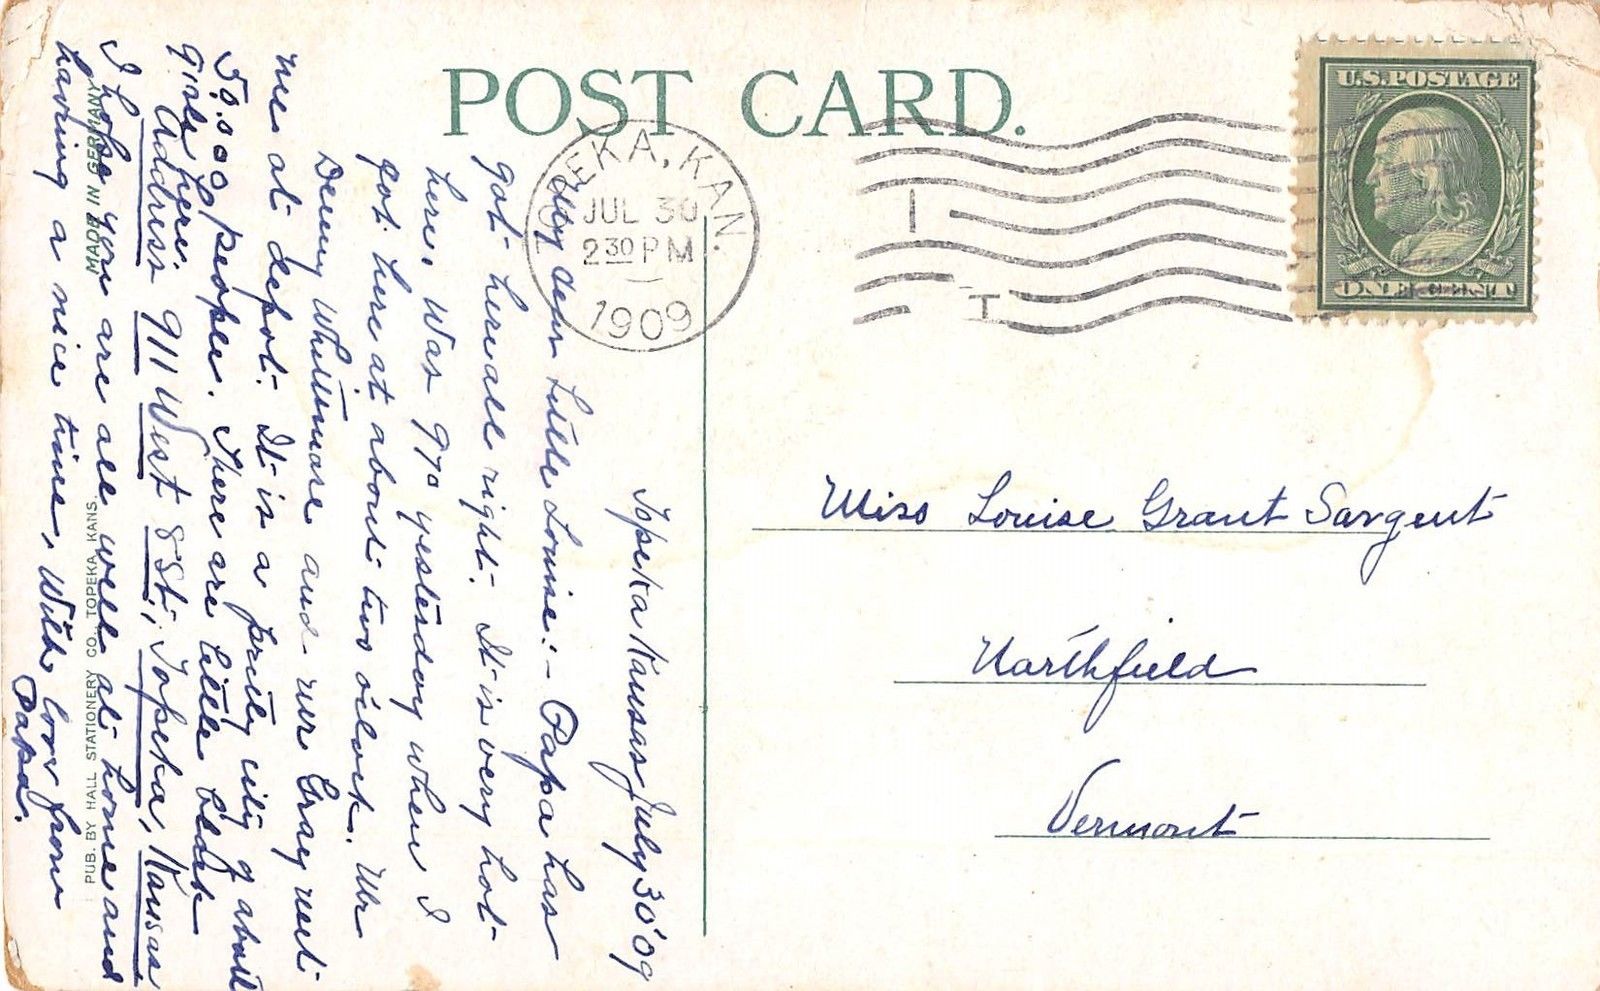 POST CARD.
TOPEKA, KAN.
JUL 30
2 30 P M
1909
U.S. POSTAGE
ONE CENT
Topeka Kansas July 30'09
My dear Little Louise:- Papa has
got here all right. It is very hot
here, was 97° yesterday when I
got here at about two oclock. Mr
Whittmore and Mr Gray met
me at depot. It is a pretty city of about
people. There are little black
girls here.
Address 911 West 8 St., Topeka, Kansas
I hope you are all well at home and
having a nice time, With love from
Papa.
MADE IN GERMANY
PUB. BY HALL STATIONERY CO., TOPEKA, KANS.
Miss Louise Grant Sargent
Northfield
Vermont